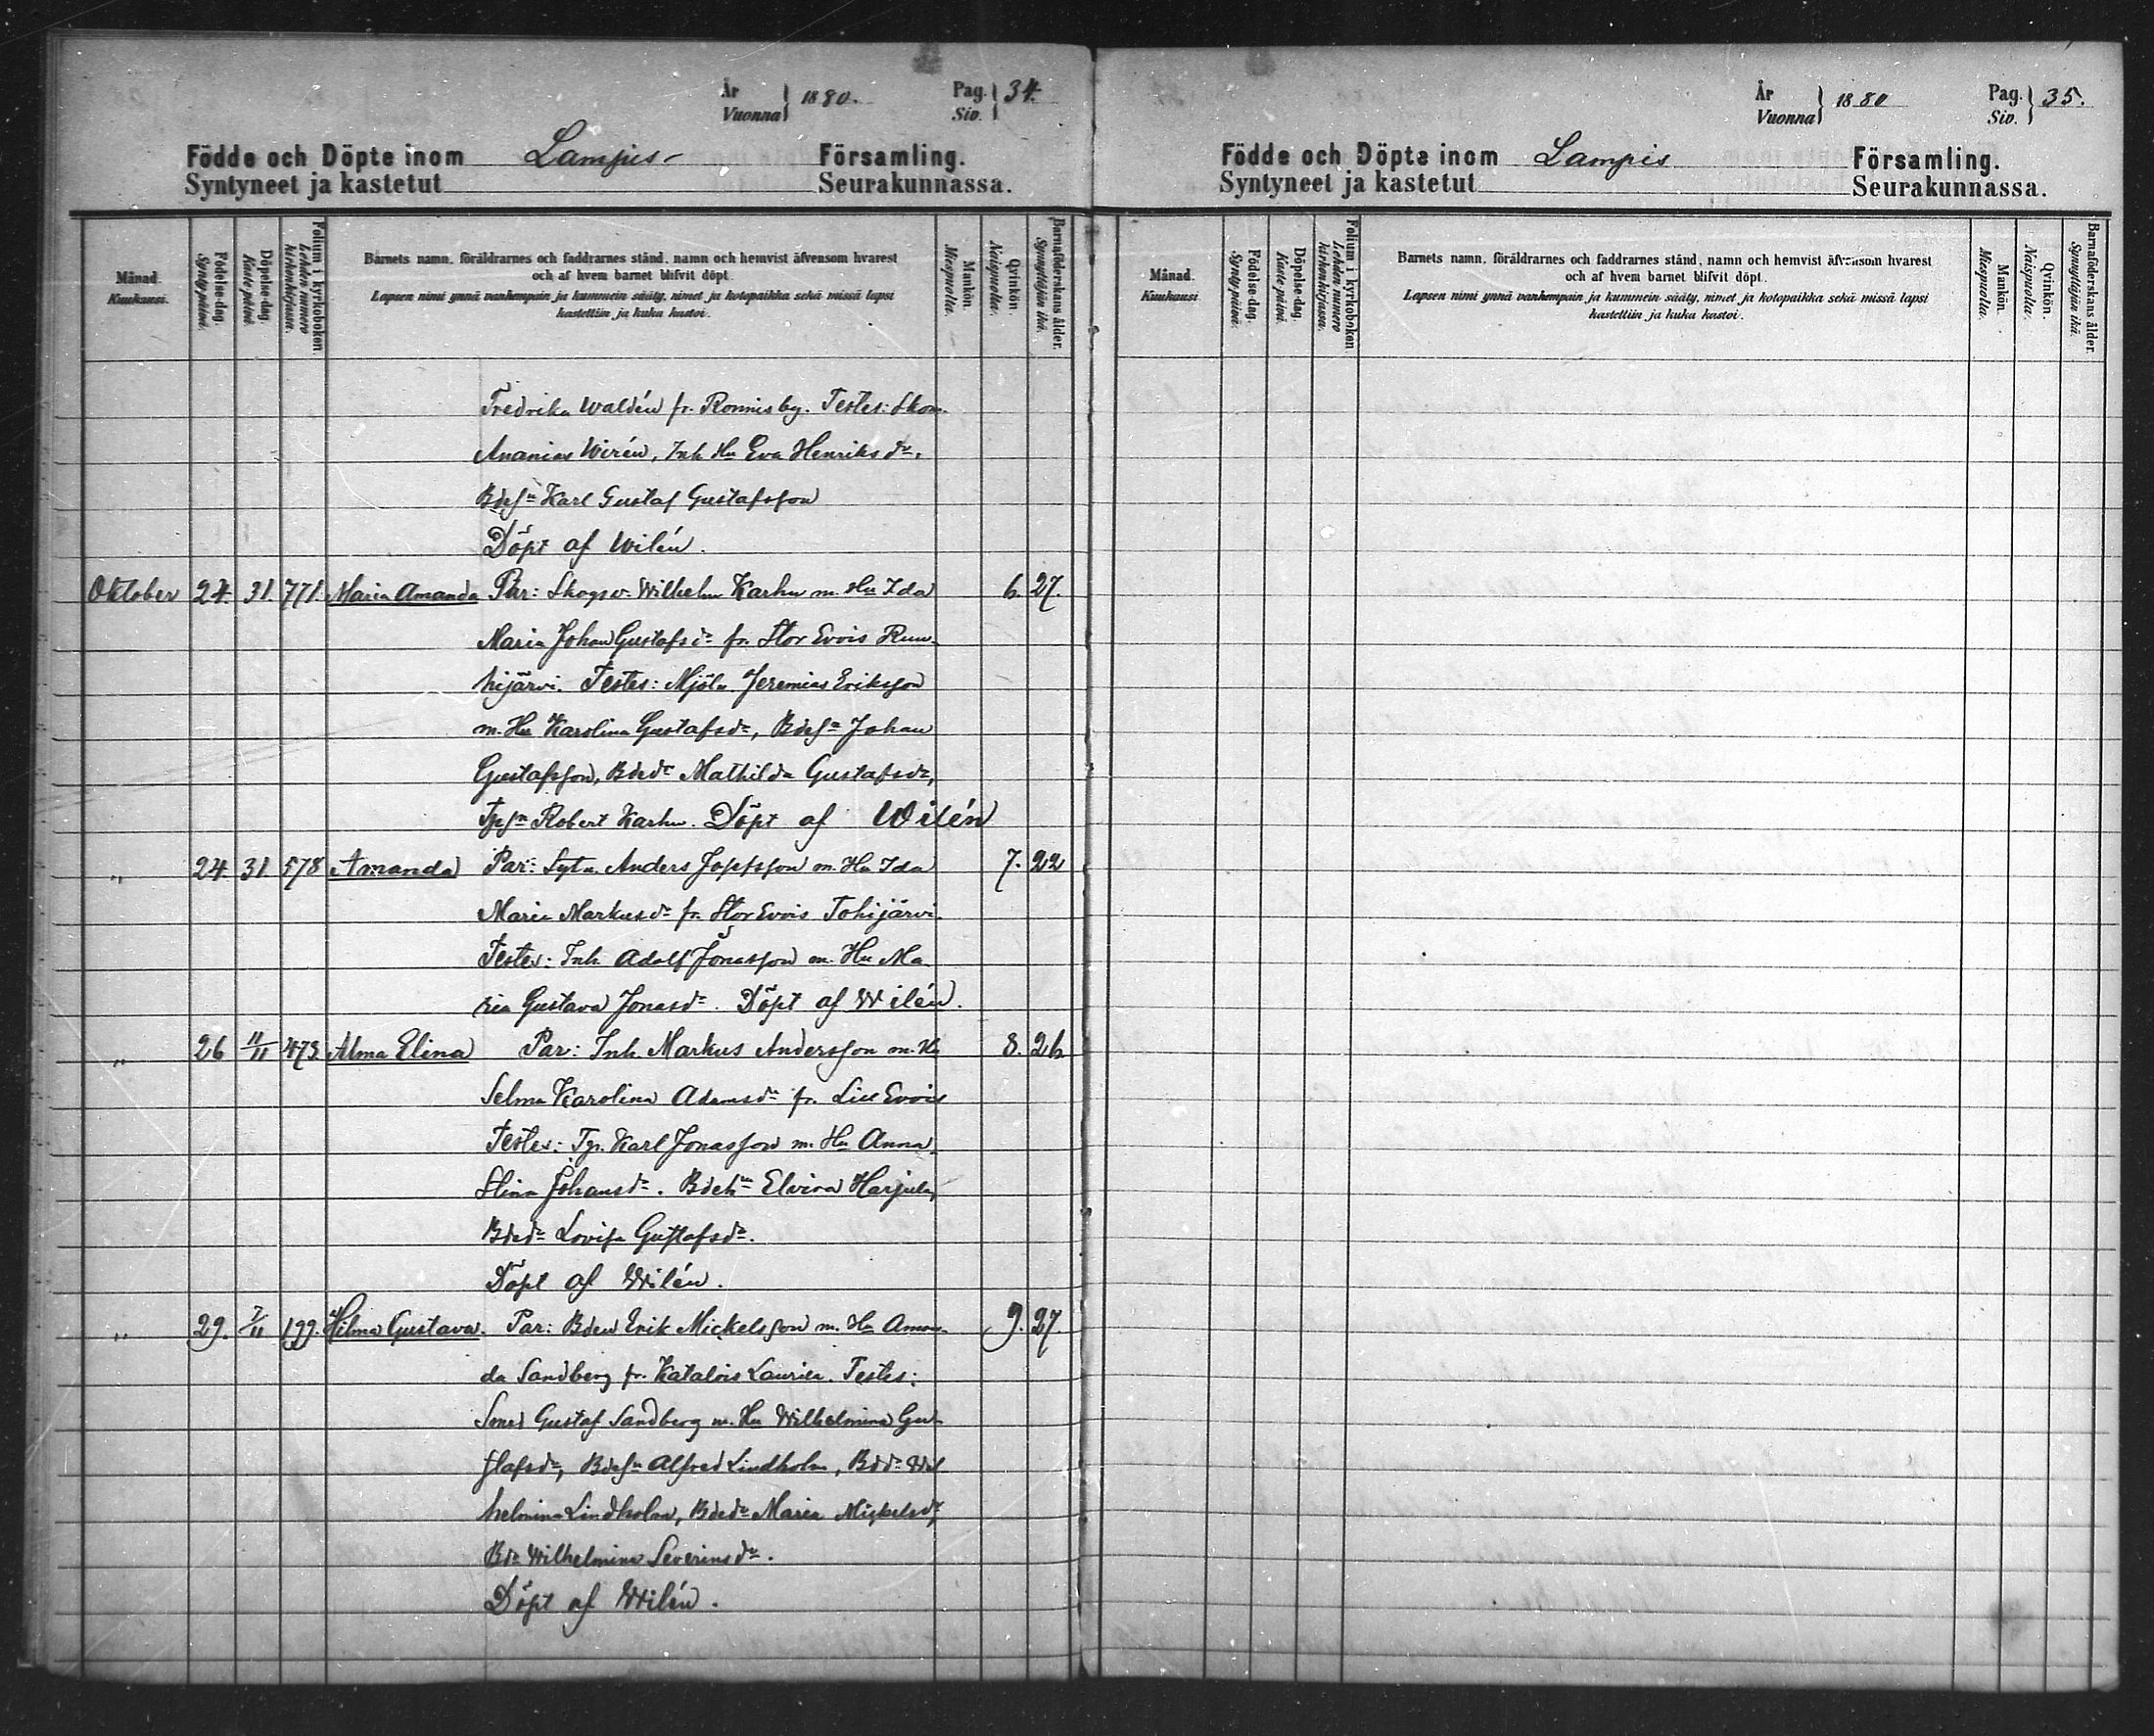 År
Vuonna } 1880.
Pag.
Siv. } 34.
Födde och Döpte inom Lampis Församling.
Syntyneet ja kastetut Seurakunnassa.
Månad.
Kuukausi.
Födelse-dag.
Synty-päivä.
Döpelse-dag.
Kaste-päivä.
Folium i kyrkoboken
Lehden numero kirkonkirjassa.
Barnets namn, föräldrarnes och faddrarnes stånd, namn och hemvist äfvensom hvarest
och af hvem barnet blifvit döpt.
Lapsen nimi ynnä vanhempain ja kummein sääty, nimet ja kotopaikka sekä missä lapsi
kastettiin ja kuka kastoi.
Mankön.
Miespuolta.
Qvinkön.
Naispuolta.
Barnaföderskans ålder.
Synnyttäjän ikä.
Fredrika Waldén fr. Ronnisby. Testes: Skom.
Ananias Wirén, Inh. Hu Eva Henriksdr.
Bdesn Karl Gustaf Gustafsson
Döpt af Wilén.
Oktober 24. 31. 771. Maria Amanda Par: Skogsv. Wilhelm Karhu m. Hu Ida 6. 27.
Maria Johan Gustafsdr fr. Stor Evois Ruu-
hijärvi. Testes: Mjöln. Jeremias Eriksson
m. Hu Karolina Gustafsdr, Bdesn Johan
Gustafsson, Bdedr Mathilda Gustafsdr,
Tpsn Robert Karhu. Döpt af Wilén
" 24. 31. 578 Amanda Par: Sytn. Anders Josefsson m. Hu Ida 7. 22
Maria Markusdr fr. Stor Evois Tohijärvi.
Testes: Inh. Adolf Jonasson m. Hu Ma-
ria Gustava Jonasdr. Döpt af Wilén.
" 26 11/11 473 Alma Elina Par: Inh. Markus Andersson m. Hu 8. 26
Selma Karolina Adamsdr fr. Lill Evois
Testes: Tp. Karl Jonasson m. Hu Anna
Stina Johansdr. Elvira Harjula,
Bdedr Lovisa Gustafsdr.
Döpt af Wilén.
" 29. 7/11 199. Hilma Gustava. Par: Bden Erik Mickelsson m. Hu Aman- 9. 27.
da Sandberg fr. Katalois Laurila. Testes:
Smed Gustaf Sandberg m. Hu Wilhelmina Gu-
stafsdr, Bdesn Alfred Lindholm, Bddr Wil-
helmina Lindholm, Bdedr Maria Mickelsdr,
Bdr Wilhelmina Severinsdr.
Döpt af Wilén.
År
Vuonna } 1880
Pag.
Siv. } 35.
Födde och Döpte inom Lampis Församling.
Syntyneet ja kastetut Seurakunnassa.
Månad.
Kuukausi.
Födelse-dag.
Synty-päivä.
Döpelse-dag.
Kaste-päivä.
Folium i kyrkoboken
Lehden numero kirkonkirjassa.
Barnets namn, föräldrarnes och faddrarnes stånd, namn och hemvist äfvensom hvarest
och af hvem barnet blifvit döpt.
Lapsen nimi ynnä vanhempain ja kummein sääty, nimet ja kotopaikka sekä missä lapsi
kastettiin ja kuka kastoi.
Mankön.
Miespuolta.
Qvinkön.
Naispuolta.
Barnaföderskans ålder.
Synnyttäjän ikä.